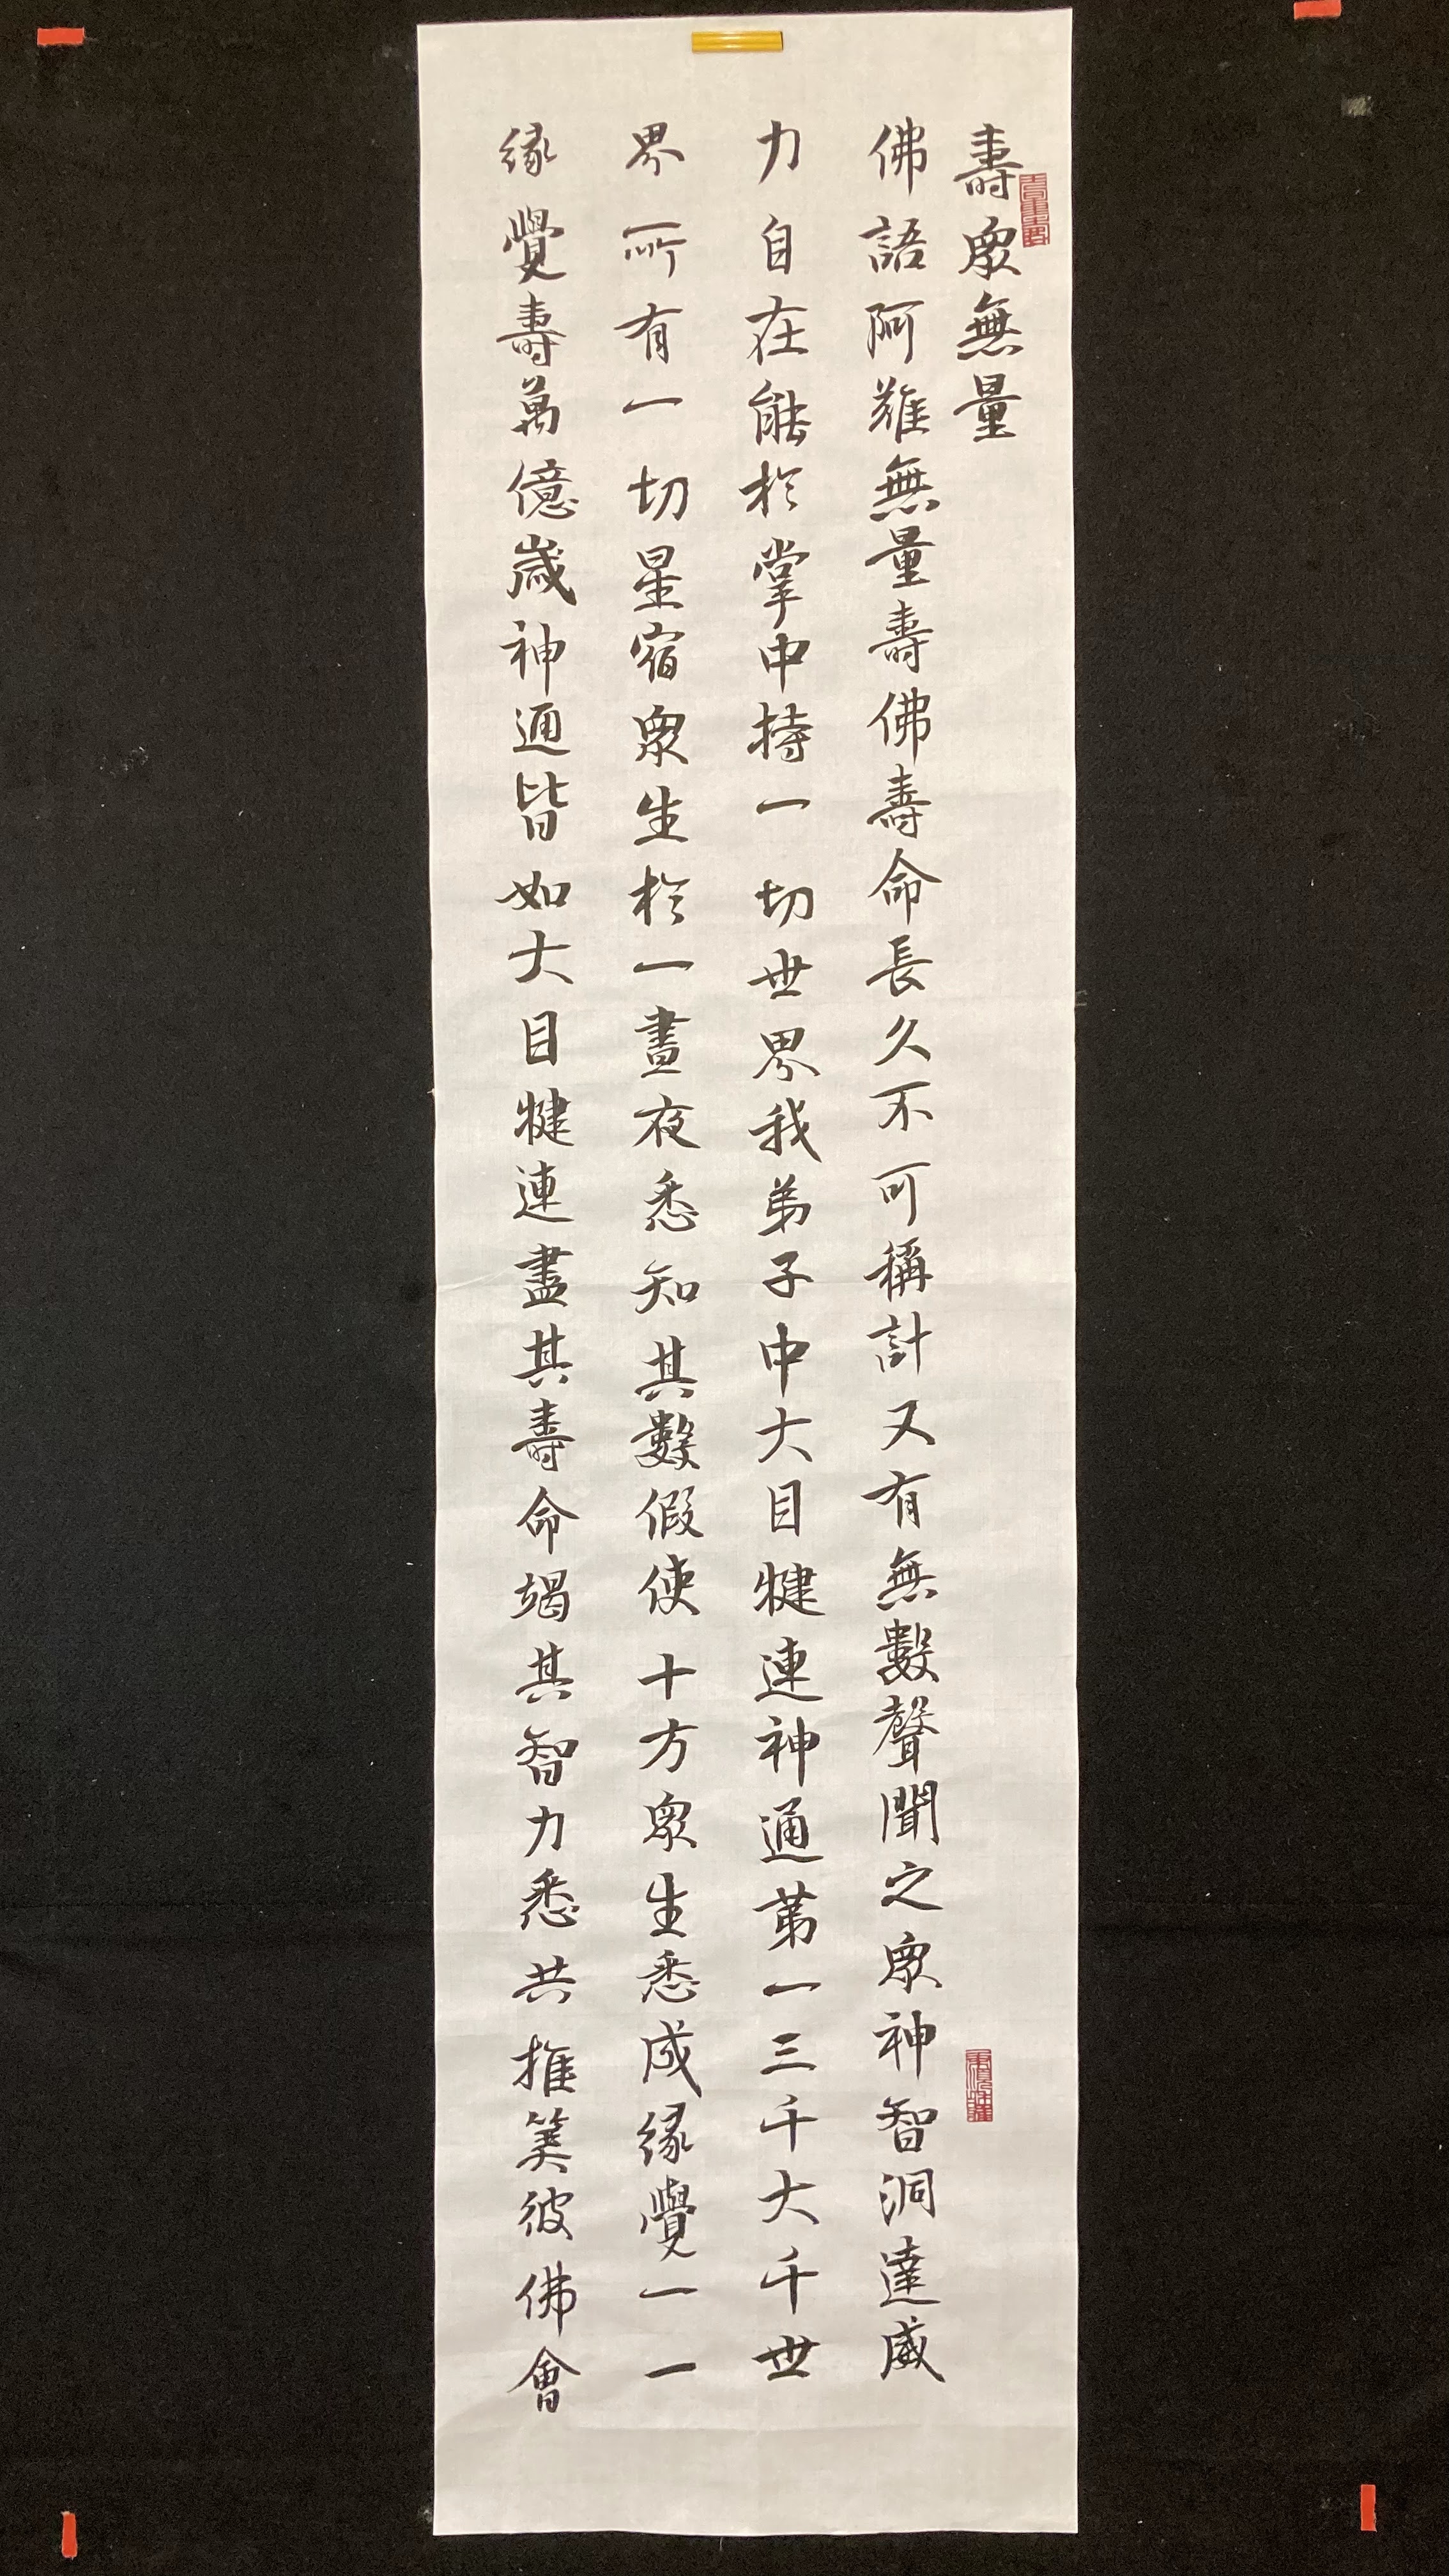 壽眾無量
佛語阿難無量壽佛壽命長久不可稱計又有無數聲聞之眾神智洞達威
力自在能於掌中持一切世界我弟子中大目犍連神通第一三千大千世
界所有一切星宿眾生於一晝夜悉知其數假使十方眾生悉成緣覺一一
緣覺壽萬億歲神通皆如大目犍連盡其壽命竭其智力悉共推算彼佛會